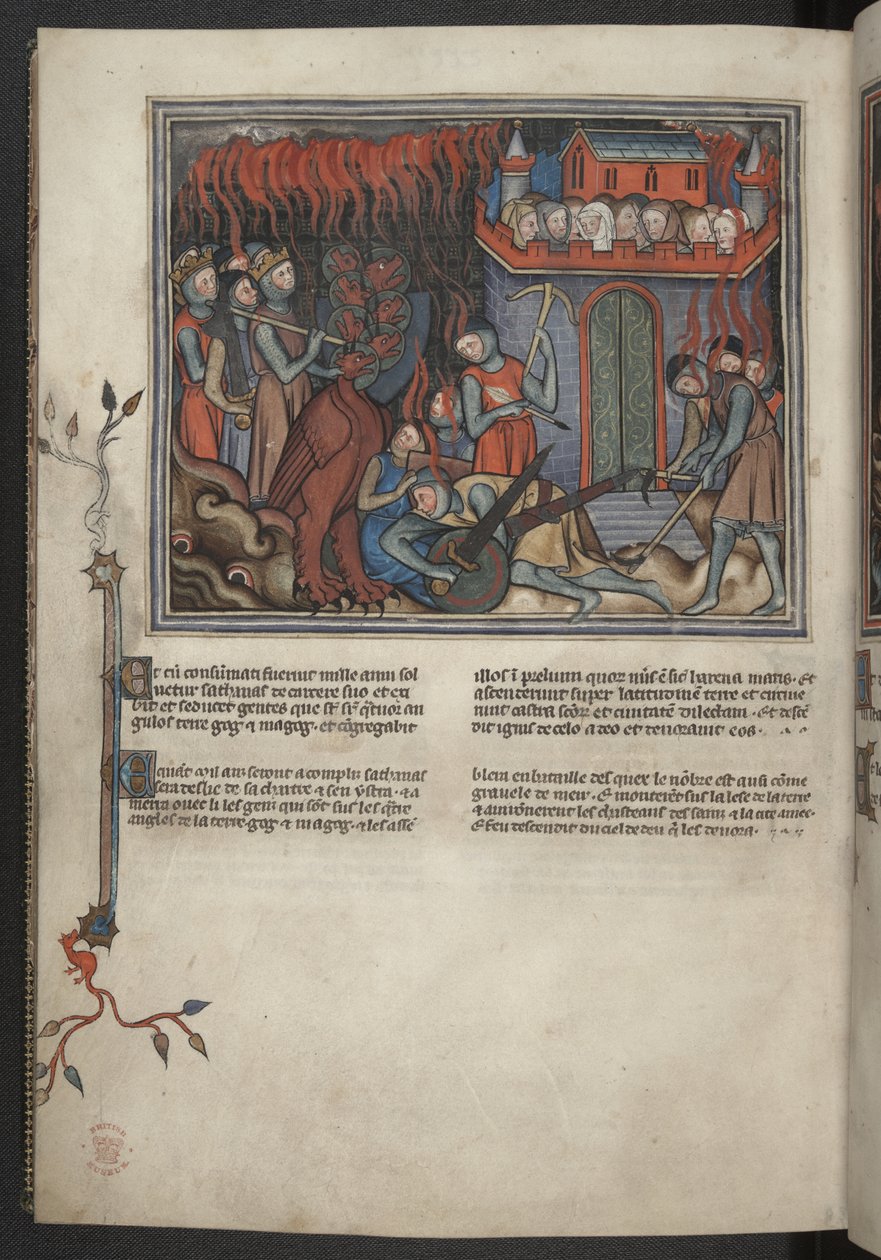 Et cū consūmati fuerint mille anni sol
uetur sathanas de carcere suo et exi
bit et seducet gentes que st̄ sr̄ q̄tuor an
gulos terre gog ⁊ magog. et cōgregabit
illos ī prelium quor nūs ē sic̄ harena maris. Et
ascenderunt super latitudinē terre et circuie
runt castra scōr et ciuitatē dilectam. Et descē
dit ignis de celo a deo et deuorauit eos.
E cuāt mil anz seront acompliz sathanas
sera deslie de sa chartre ⁊ sen ystra. ⁊ a
menra ouec li les genz qui sōt sus les q̄tre
angles de la terre. gog ⁊ magog. ⁊ les assē
blera en bataille des quex le nōbre est ausi cōme
grauele de mer. E monterēt sus la lese de la terre
⁊ auirōnerent les chasteaus des sainz ⁊ la cite amee.
E feu descendit du ciel de deu q̄ les deuora.
BRITISH
MUSEUM